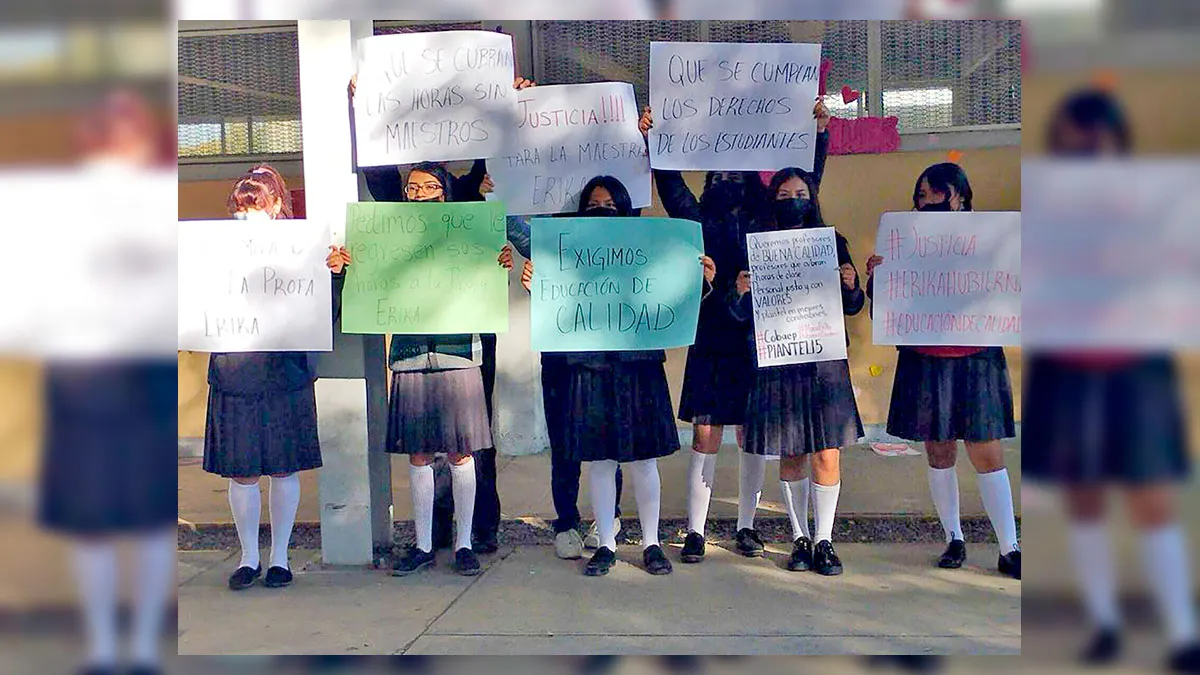 ¡UE SE CUBRAN
LAS HORAS SIN
MAESTROS
JUSTICIA!!!
PARA LA MAESTRA
ERIKA
QUE SE CUMPLAN
LOS DERECHOS
DE LOS ESTUDIANTES
LA PROFA
ERIKA
Pedimos que le
regresen sus
horas a la Profa
ERIKA
EXIGIMOS
EDUCACIÓN DE
CALIDAD
Queremos profesores
de BUENA CALIDAD,
profesores que cubran
horas de clase
Personal justo y con
VALORES
Y plantel en mejores
condiciones
#Cobaep
#PLANTEL15
#JUSTICIA
#ERIKAHUBIERN
#EDUCACIÓNDECALIDAD